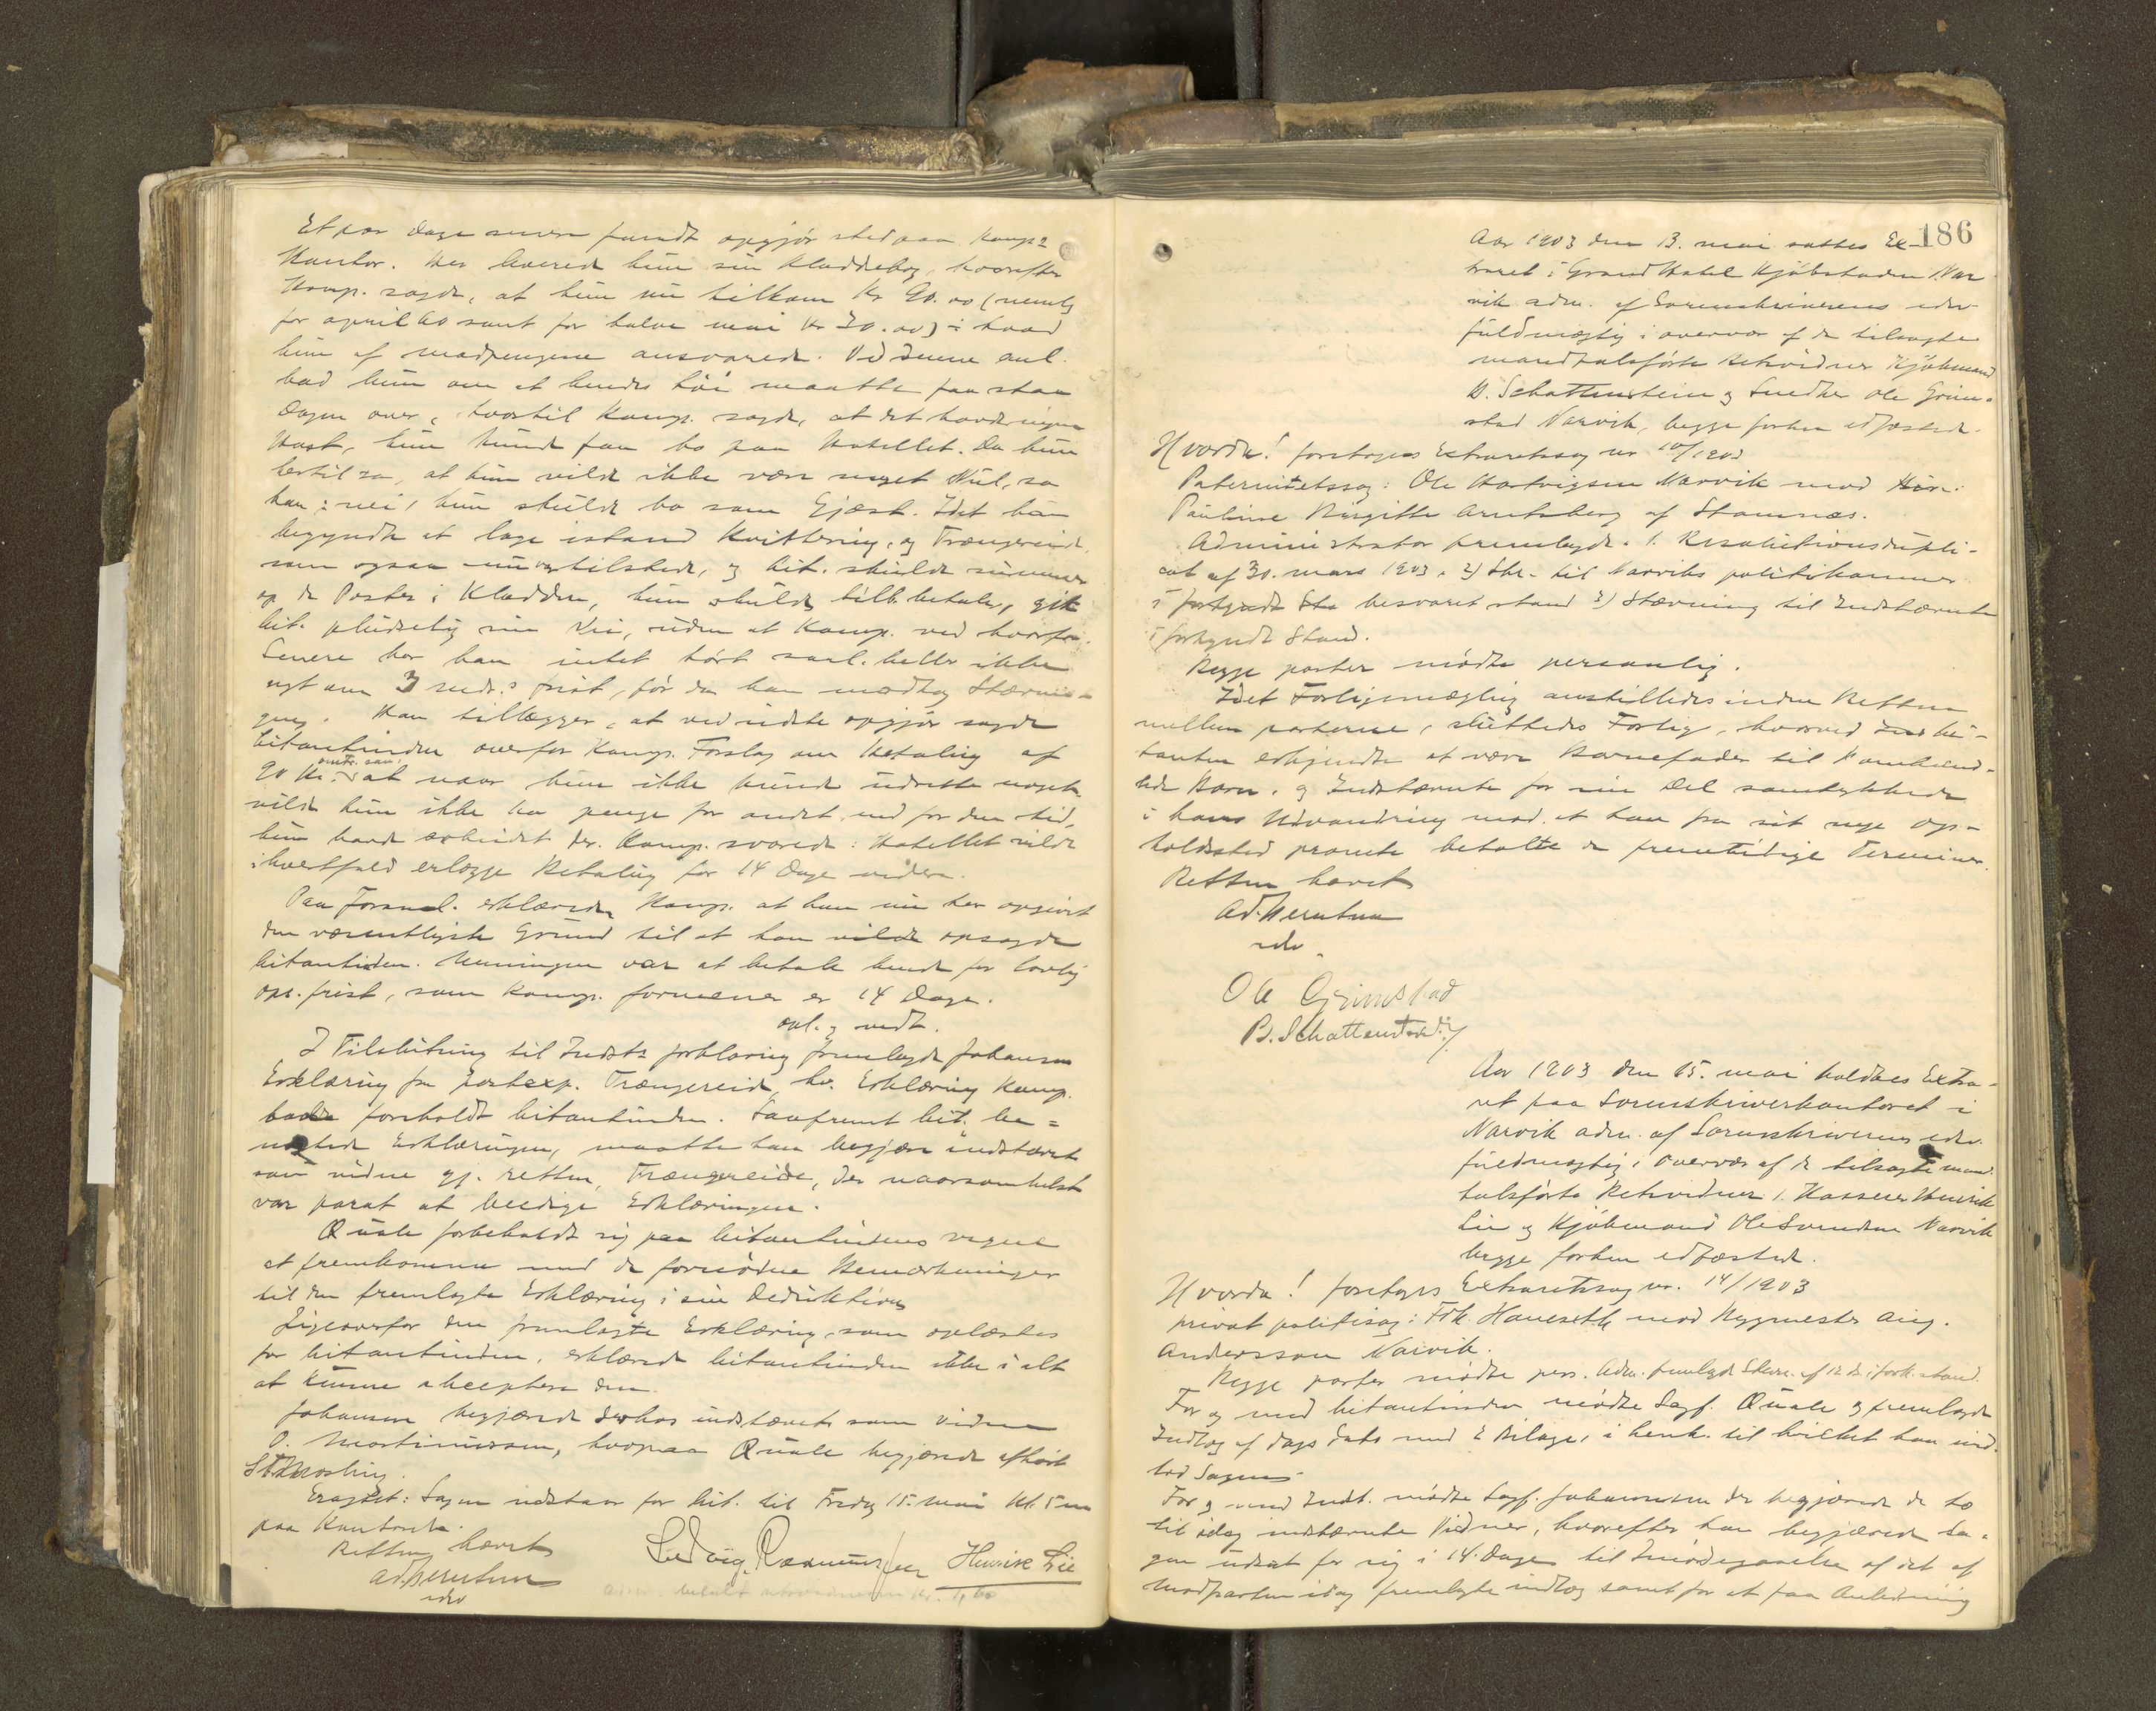 Et par Dage senere fandt opgjør sted paa Komp.s
Kontor. Her leverede hun sin Kladdebog, hvorefter
Komp. sagde, at hun nu tilkom Kr 90.00 (nemlig
for april 60 samt for halve mai Kr 30.00) i hvad
hun af madpengene ansvarede. Ved denne anl.
bad hun om at hendes töi maatte faa staa
Dagen over, hvortil Komp. sagde, at det havde ingen
Hast, hun kunde faa bo paa Hotellet. Da hun
hertil sa, at hun vilde ikke være noget Hjul, sa
han: nei, hun skulde bo som Gjæst. Idet han
begyndte at lage istand Kvittering, og Trængereid,
som ogsaa var tilstede, og Cit. skulde summere
op de Poster i Kladden, hun skulde tilb. betale, gik
Cit. pludselig sin Vei, uden at Komp. ved hvorfor.
Senere har han intet hørt saal. heller ikke
nyt om 3 mdr.s frist, før da han modtog Stævnin-
gen. Han tillægger, at ved sidste opgjør sagde
Citantinden overfor Komp. Forslag om Betaling af
90 Kr. at naar hun ikke kunde udrette noget
vilde hun ikke ha penge for andet end for den tid,
hun havde arbeidet der. Komp. svarede: Hotellet vilde
ihvertfald erlægge Betaling for 14 Dage videre.
Paa Foranl. erklærede Komp. at han nu har opgivet
den væsentligste Grund til at han vilde opsagde
Citantinden. Meningen var at betale hende for lovlig
ops. frist, som Komp. formener er 14 Dage.
opl. og vedt.
I Tilslutning til Indst.s forklaring fremlagde Johansen
Erklæring fra postexp. Trængereid, hv. Erklæring Komp.
havde foreholdt Citantinden. Saafremt Cit. be=
nægtede Erklæringen, maatte han begjære indstævnt
som vidne gj. retten, Trængereide, der naarsomhelst
var parat at beedige Erklæringen.
Quale forbeholdt sig paa Citantindens vegne
at fremkomme med de fornødne Bemærkninger
til den fremlagte Erklæring i sin Deduktion
Ligeoverfor den fremlagte Erklæring, som oplæstes
for Citantinden, erklærede Citantinden ikke i alt
at kunne akceptere den.
Johansen begjærede derhos indstævnt som vidne
O. Mortinussen, hvorpaa Quale begjærede afhørt
St. Mosling.
Eragtet: Sagen udstaar for Cit. til Fredag 15. mai Kl. 5 em
paa Kontoret.
Retten hævet
Ludvig Rasmussen Henrik Lie
Adm. betalt retsvidnerne Kr.
186
Aar 1903 den 13. mai sattes Ex-
traret i Grand Hotel Kjøbstaden Nar
vik adm. af Sorenskriverens edsv
fuldmægtig i overvær af de tilsagte
mandtalsførte Retsvidner Kjøbmand
B. Schattenstein og Snedker Ole Grim-
stad Narvik, begge forhen edfæstede.
Hvorda! foretoges Extraretssag nr 10/1903
Paternitetssag: Ole Hartvigsen Narvik mod
Pauline Birgitte Arntsberg af Stamnæs.
Administrator fremlagde. 1. Resolutionsdupli-
cat af 30. mars 1903. 2) Skr. til Narviks politikammer
i besvaret stand 3) Stævning til Indstævnte
i forkyndt Stand.
Begge parter mødte personlig.
Idet Forligsmægling anstilledes inden Retten
mellem parterne, sluttedes Forlig, hvorved Ci-
tanten erkjendte at være Barnefader til Pomhand-
lede Barn, og Indstævnte for sin Del samtykkede
i hans Udvandring mod at han fra sit nye Op-
holdssted promte betalte de fremtidige Terminer.
Retten hævet
edsv
Ole Grimstad
B. Schattenstein
Aar 1903 den 15. mai holdtes Extra-
ret paa Sorenskriverkontoret i
Narvik adm. af Sorenskriverens edsv.
fuldmægtig i Overvær af de tilsagte mand
talsførte Retsvidner 1. Kasserer Henrik
Lie og Kjøbmand Ole Svendsen Narvik
begge forhen edfæstede.
Hvorda! foretoges Extraretssag nr. 14/1903
privat politisag: Frk. Haneseth mod Bygmester Aug.
Andersson Narvik.
Begge parter mødte pers. Adm. fremlagde Stevn. af 12 ds. i fork. stand.
For og med Citantinden mødte Sagf. Quale og fremlagde
Indlæg af dags dato med 2 Bilage, i henh. til hvilket han ind
lod Sagen
For og med Indst. mødte Sagf. Johannesen der begjærede de to
til idag indstævnte Vidner, hvorefter han begjærede Sa-
gen udsat for sig i 14 Dage til Imødegaaelse af det af
Modparten idag fremlagte indlæg samt for at faa Anledning